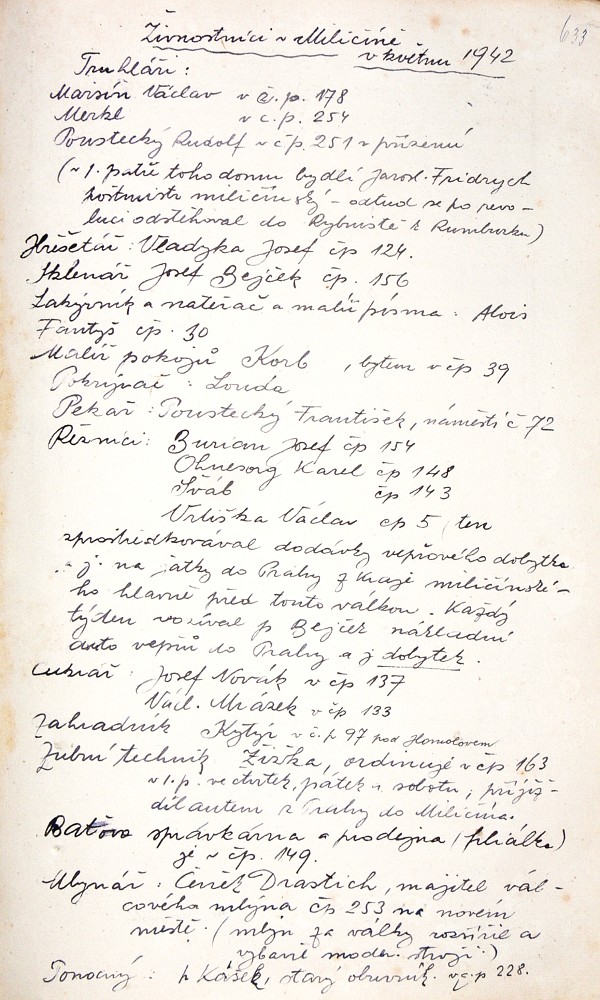 633
Živnostníci v Miličíně
v květnu 1942
Truhláři :
Maršín Václav v č.p. 178
Merkl v č.p. 254
Poustecký Rudolf v čp. 251 v přízemí
(v 1. patře toho domu bydlí Jarosl. Fridrych
hostmistr miličínský – odtud se po revo-
luci odstěhoval do Rybniště u Rumburku)
Hřešetář : Vladyka Josef čp 124.
Sklenář Josef Bejček čp. 156
Lakýrník a natěrač a malíř písma : Alois
Fantyš čp. 30
Malíř pokojů Korb , bytem v čp 39
Pokrývač : Louda
Pekař : Poustecký František, náměstí č 72
Řezníci : Burian Josef čp 154
Ohnesorg Karel čp 148
Šváb čp 143
Vrtiška Václav cp 5, ten
zprostředkovával dodávky vepřového dobytka
j. na jatky do Prahy z kraje miličínské-
ho hlavně před touto válkou. Každý
týden vozíval p Bejček nákladní
auto vepřů do Prahy a j dobytek.
Cukrář : Josef Novák v čp 137
Václ. Mrázek v čp 133
Zahradník Kytýr v č.p 97 pod Homolovem
Zubní technik Žižka, ordinuje v čp 163
v 1.p. ve čtvrtek, pátek a sobotu, přijíž-
dil autem z Prahy do Miličína.
Baťova správkárna a prodejna (filiálka)
je v čp. 149.
Mlynář : Čeněk Drastich, majitel vál-
cového mlýna čp 253 na novém
městě. (mlýn za války rozšířil a
vybavil moder. stroji)
Ponocný : p Kášek, starý obuvník. v č.p 228.